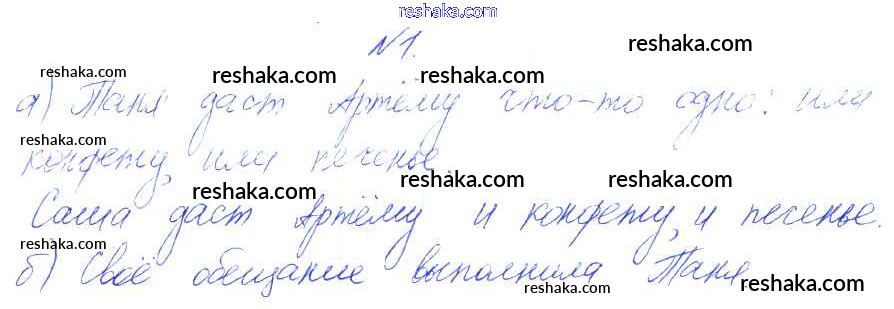 reshaka.com
№1.
reshaka.com
reshaka.com reshaka.com reshaka.com
а) Таня даст Артёму что-то одно: или
reshaka.com
конфету, или печенье.
reshaka.com reshaka.com reshaka.com
Саша даст Артёму и конфету, и печенье.
reshaka.com
б) Своё обещание выполнила Таня
reshaka.com reshaka.com